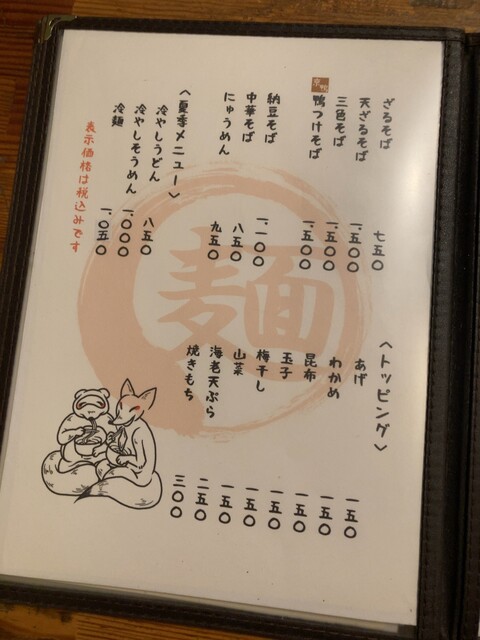 ざるそば 七五〇
天ざるそば 一、五〇〇
三色そば 一、五〇〇
鴨つけそば 一、五〇〇
納豆そば 一、一〇〇
中華そば 八五〇
にゅうめん 九五〇
〈夏季メニュー〉
冷やしうどん 八五〇
冷やしそうめん 一、〇〇〇
冷麺 一、〇五〇
表示価格は税込みです
〈トッピング〉
あげ 一五〇
わかめ 一五〇
昆布 一五〇
玉子 一五〇
梅干し 一五〇
山菜 一五〇
海老天ぷら 二五〇
焼きもち 三〇〇
麺